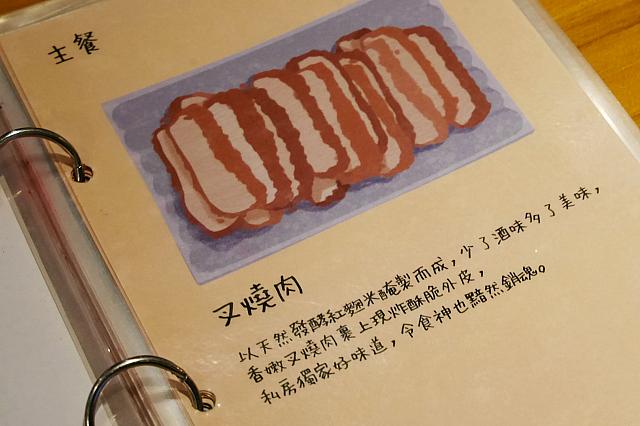 主餐
叉燒肉
以天然發酵紅麴米醃製而成，少了酒味多了美味，
香嫩叉燒肉裹上現炸酥脆外皮，
私房獨家好味道，令食神也黯然銷魂。